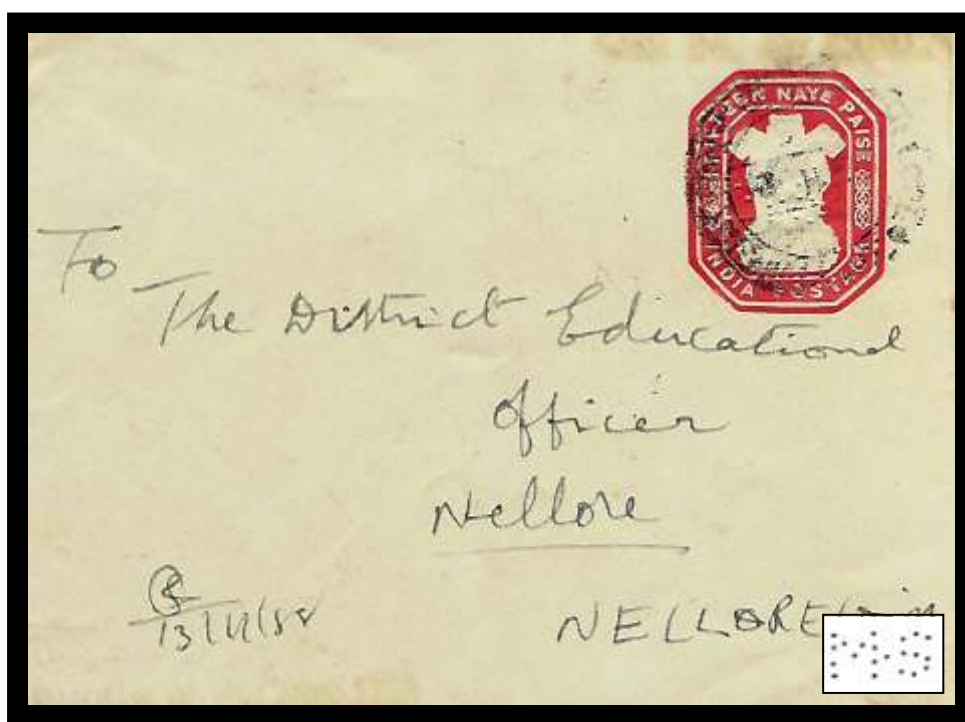 NAYE PAISE
INDIA POSTAGE
To
The District Educational
Officer
Nellore
NELLORE